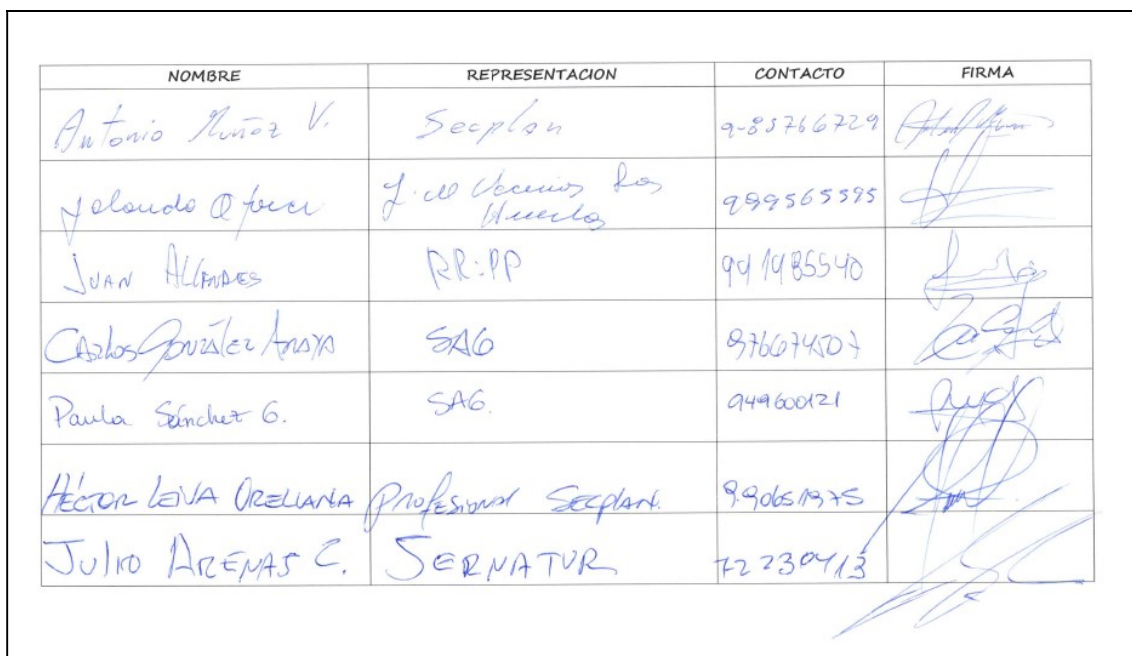 NOMBRE REPRESENTACION CONTACTO FIRMA
Antonio Muñoz V. Secplan 9-85766729
J. de Vecinos Los 999565595
Huertos
JUAN ALLENDES RR:PP
CARLOS GONZÁLEZ ARAYA SAG 976674507
Paula Sánchez G. SAG. 949600121
HÉCTOR LEIVA ORELLANA PROFESIONAL SECPLAN.
JULIO ARENAS C. SERNATUR 72230413